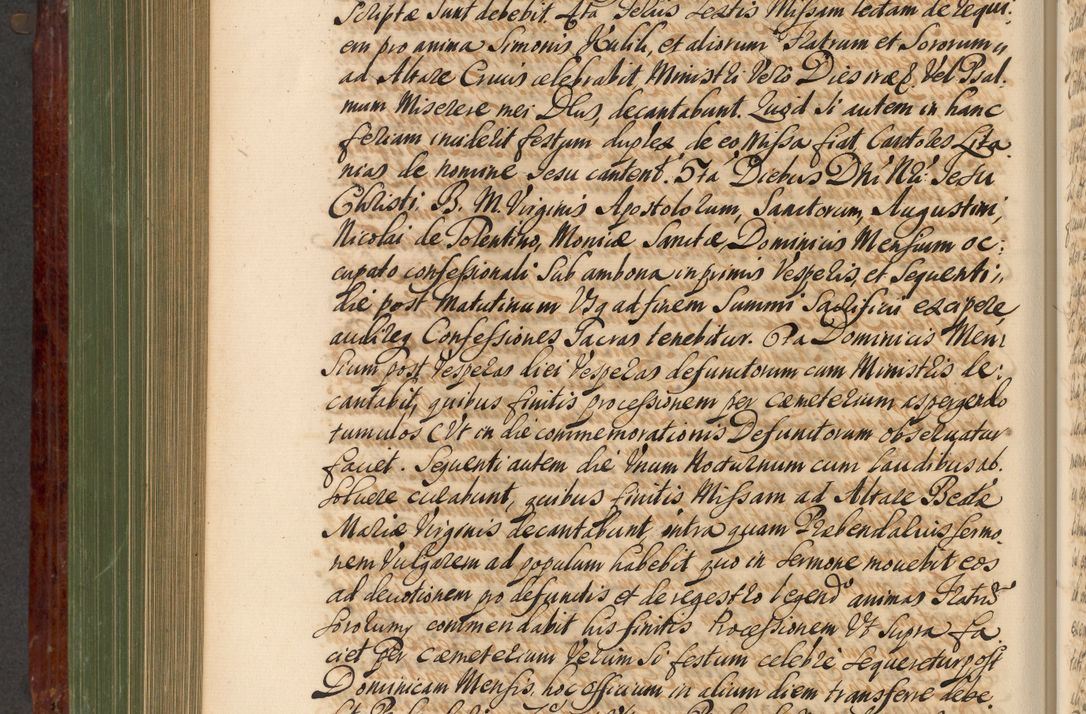 Scriptæ Sunt debebit Ita Feriis Sextis Missam lectam de requi:
em pro anima Simonis Kulik, et aliorum Fratrum et Sororum
ad Altare Crucis celebrabit Ministri Vero Dies iræ &. Vel Psal:
mum Miserere mei D[eu]s, decantabunt. Quod Si autem in hanc
feriam inciderit festum duplex, de eo Missa fiat Cantores Lita
nias de nomine Jesu cantent. Ita Diebus Dni Nri Jesu
Christi. B. M. Virginis Apostolorum, Sanctorum, Augustini,
Nicolai de Tolentino, Monicæ Sanctæ, Dominicis Mensium oc:
cupato confessionali Sub ambona in primis Vesperis, et Sequenti
die post Matutinum Usq ad finem Summi Sacrificii excipere,
audireq Confessiones Sacras tenebitur. Dominicis Men
sium post Vesperas diei Vesperas defunctorum cum Ministris de:
cantabit, quibus finitis processionem per cæmeterium aspergendo
tumulos Ut in die commemorationis Defunctorum observatur
faciet. Sequenti autem die Unum Nocturnum cum laudibus ab
solvere curabunt, quibus finitis Missam ad Altare Beatæ
Mariæ Virginis decantabunt, intra quam Præbendarius sermo
nem Vulgarem ad populum habebit quo in Sermone movebit eos
ad devotionem pro defunctis et de regestro legend animas Fratrũ
Sororumq commendabit his finitis Processionem Ut Supra fa
ciet per cæmeterium Verum Si festum celebre Sequeretur post
Dominicam Mensis, hoc officium in alium diem transferre debe